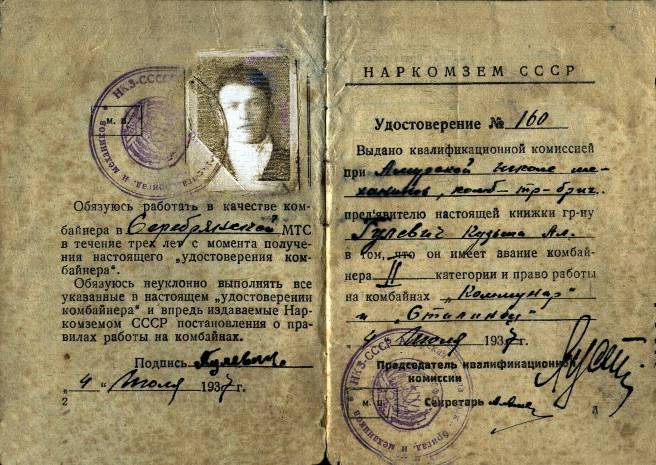 НКЗ-СССР
м. п.
Обязуюсь работать в качестве ком-
байнера в Серебрянской МТС
в течение трех лет с момента получе-
ния настоящего „удостоверения ком-
байнера“.
Обязуюсь неуклонно выполнять все
указанные в настоящем „удостоверении
комбайнера“ и впредь издаваемые Нар-
комземом СССР постановления о пра-
вилах работы на комбайнах.
Подпись Гулевич
„4“ Июля 1937 г.
2
НАРКОМЗЕМ СССР
Удостоверение № 160
Выдано квалификационной комиссией
при Амурской школе ме-
хаников, комб-тр-бриг.
пред'явителю настоящей книжки гр-ну
Гулевич Кузьма Ал.
в том, что он имеет звание комбай-
нера II категории и право работы
на комбайнах „Коммунар“
и „Сталинец“
4 Июля 1937 г.
Председатель квалификационной
комиссии
м. п.
Секретарь
3